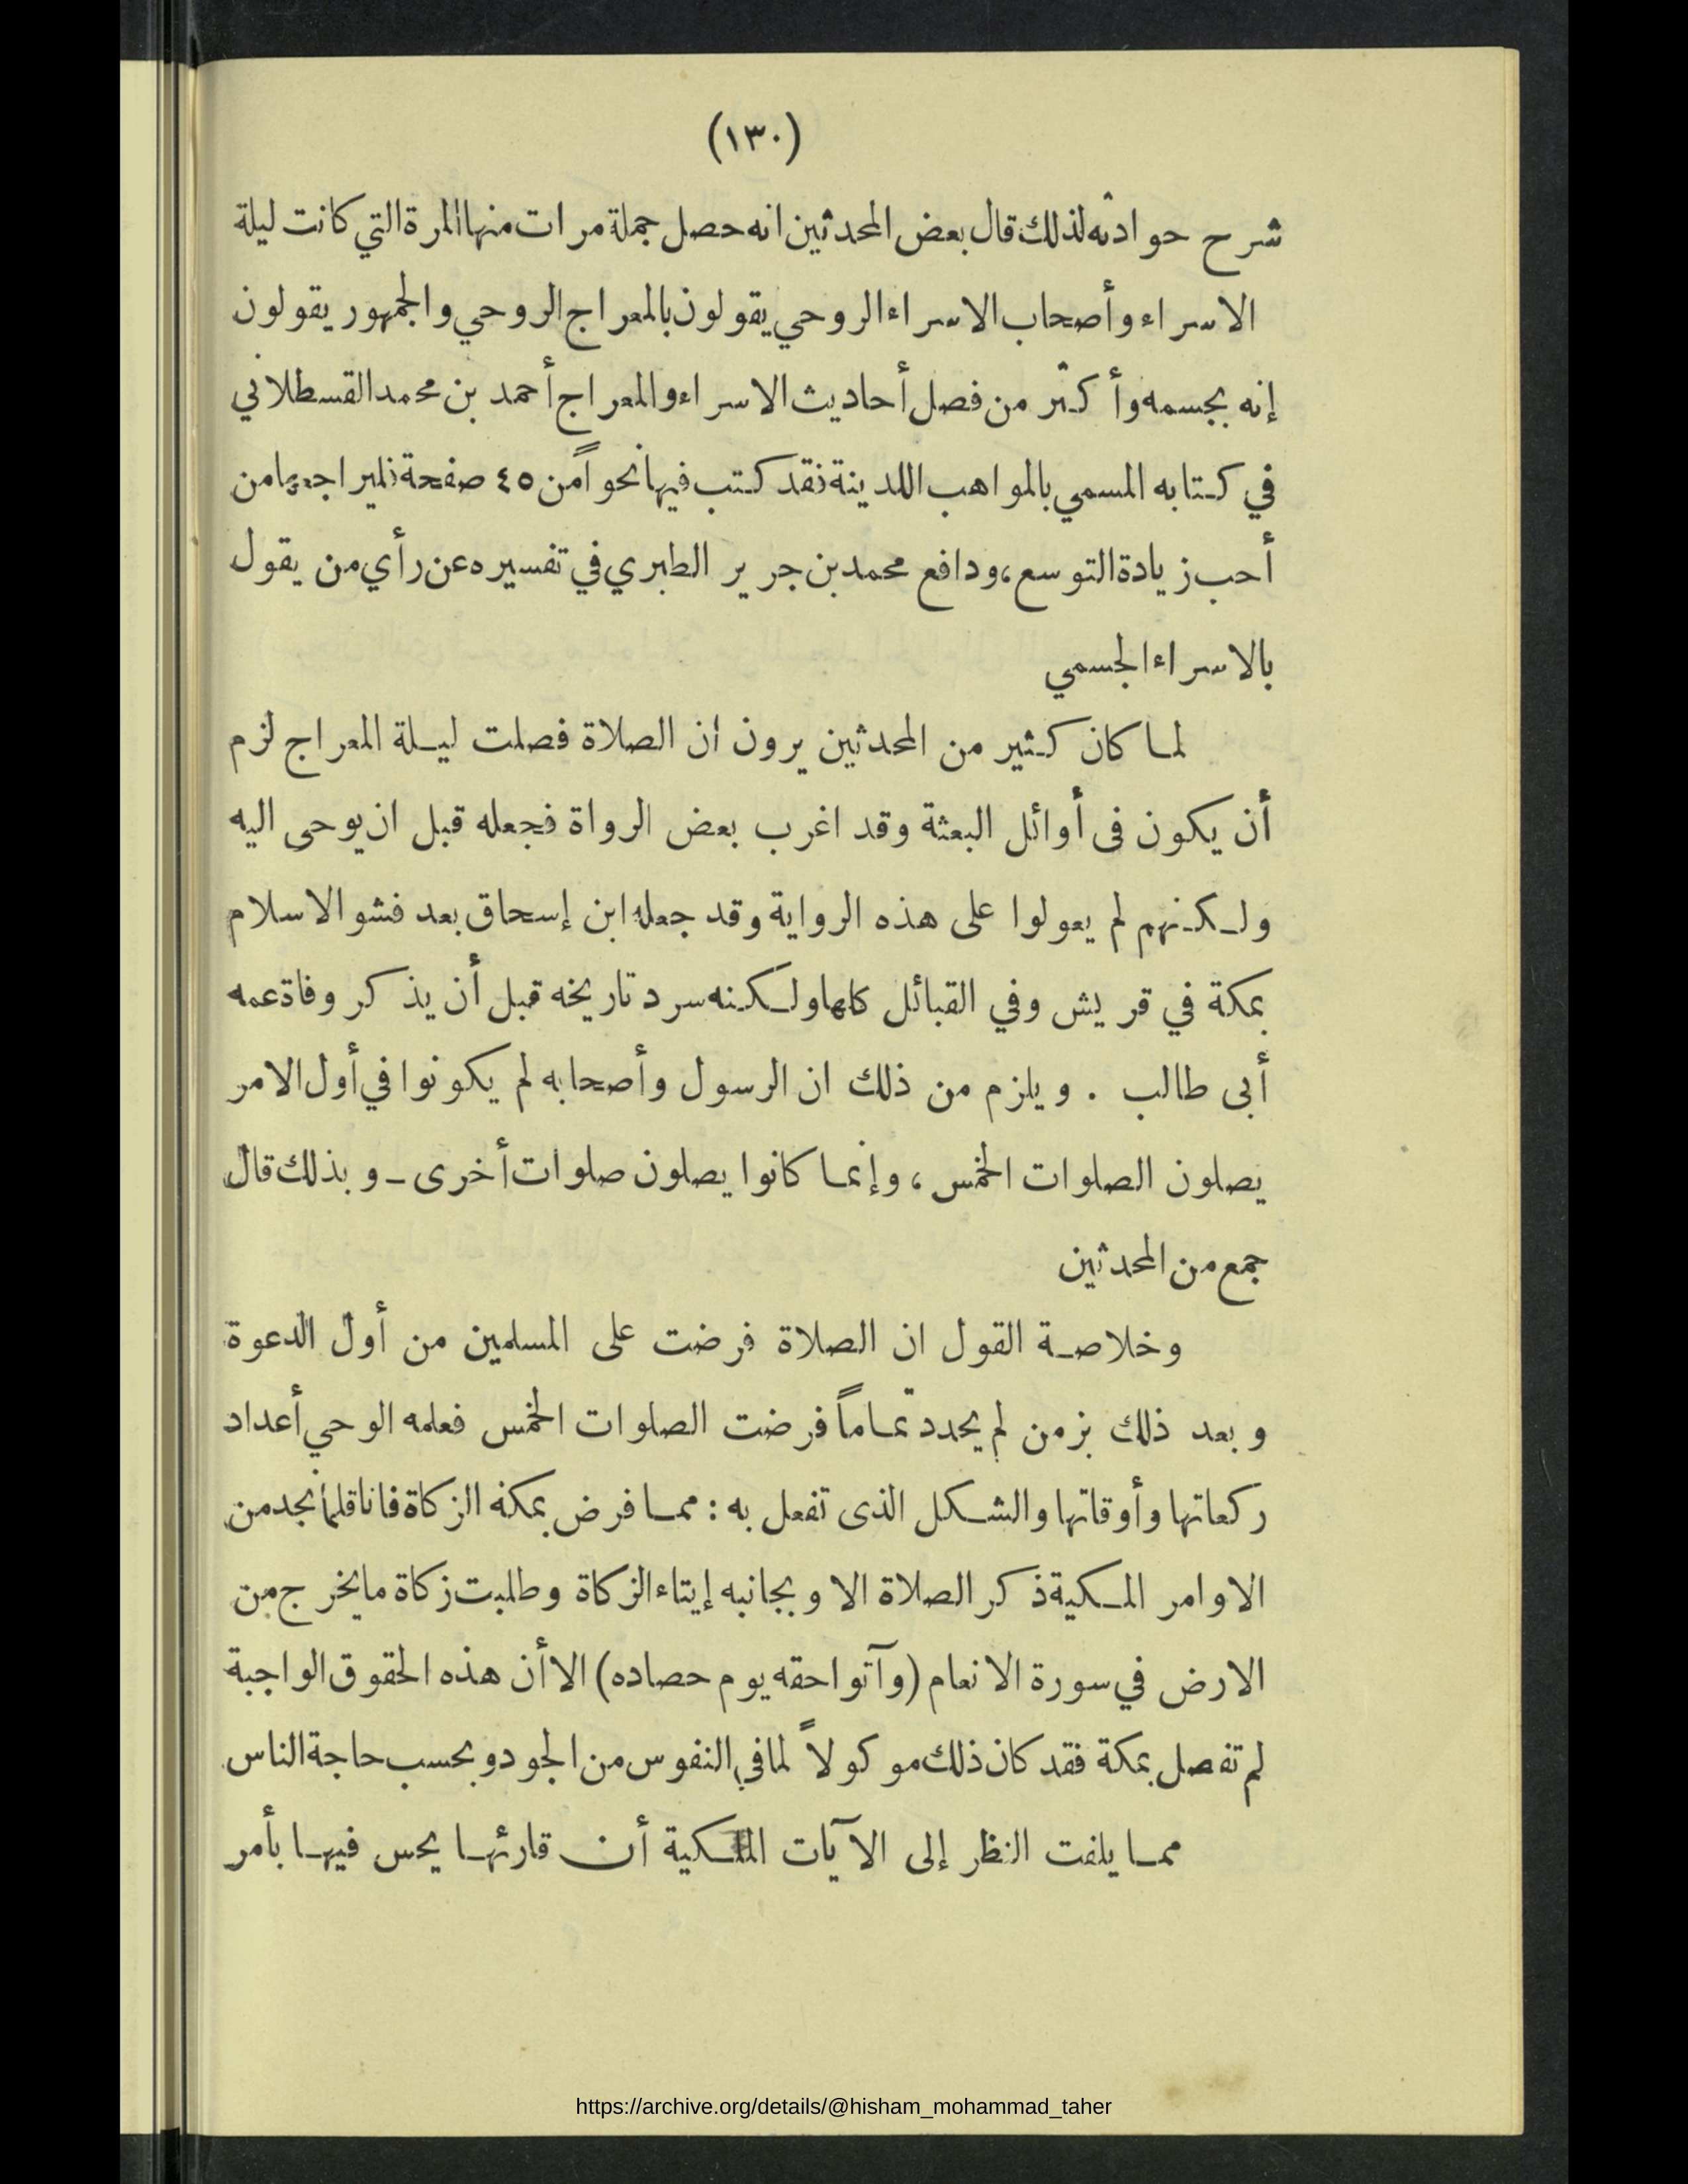 (١٣٠)
شرح حوادثه لذلك قال بعض المحدثين انه حصل جملة مرات منها المرة التي كانت ليلة
الاسراء وأصحاب الاسراء الروحي يقولون بالمعراج الروحي والجمهور يقولون
إنه بجسمه وأكثر من فصل أحاديث الاسراء والمعراج أحمد بن محمد القسطلاني
في كتابه المسمي بالمواهب اللدينة فقد كتب فيها نحوا من ٤٥ صفحة فليراجعها من
أحب زيادة التوسع، ودافع محمد بن جرير الطبري في تفسيره عن رأي من يقول
بالاسراء الجسمي
لما كان كثير من المحدثين يرون ان الصلاة فصلت ليلة المعراج لزم
أن يكون فى أوائل البعثة وقد اغرب بعض الرواة فجعله قبل ان يوحى اليه
ولكنهم لم يعولوا على هذه الرواية وقد جعله ابن إسحاق بعد فشو الاسلام
بمكة في قريش وفي القبائل كلها ولكنه سرد تاريخه قبل أن يذكر وفاة عمه
أبى طالب . ويلزم من ذلك ان الرسول وأصحابه لم يكونوا في أول الامر
يصلون الصلوات الخمس ، وإنما كانوا يصلون صلوات أخرى ـ وبذلك قال
جمع من المحدثين
وخلاصة القول ان الصلاة فرضت على المسلمين من أول الدعوة
وبعد ذلك بزمن لم يحدد تماماً فرضت الصلوات الخمس فعلمه الوحي أعداد
ركعاتها وأوقاتها والشكل الذى تفعل به : مما فرض بمكة الزكاة فانا قلما نجد من
الاوامر المكية ذكر الصلاة الا وبجانبه إيتاء الزكاة وطلبت زكاة ما يخرج من
الارض في سورة الانعام (وآتوا حقه يوم حصاده) الا أن هذه الحقوق الواجبة
لم تفصل بمكة فقد كان ذلك موكولاً لما في النفوس من الجود وبحسب حاجة الناس
مما يلفت النظر إلى الآيات المكية أن قارئها يحس فيها بأمر
https://archive.org/details/@hisham_mohammad_taher